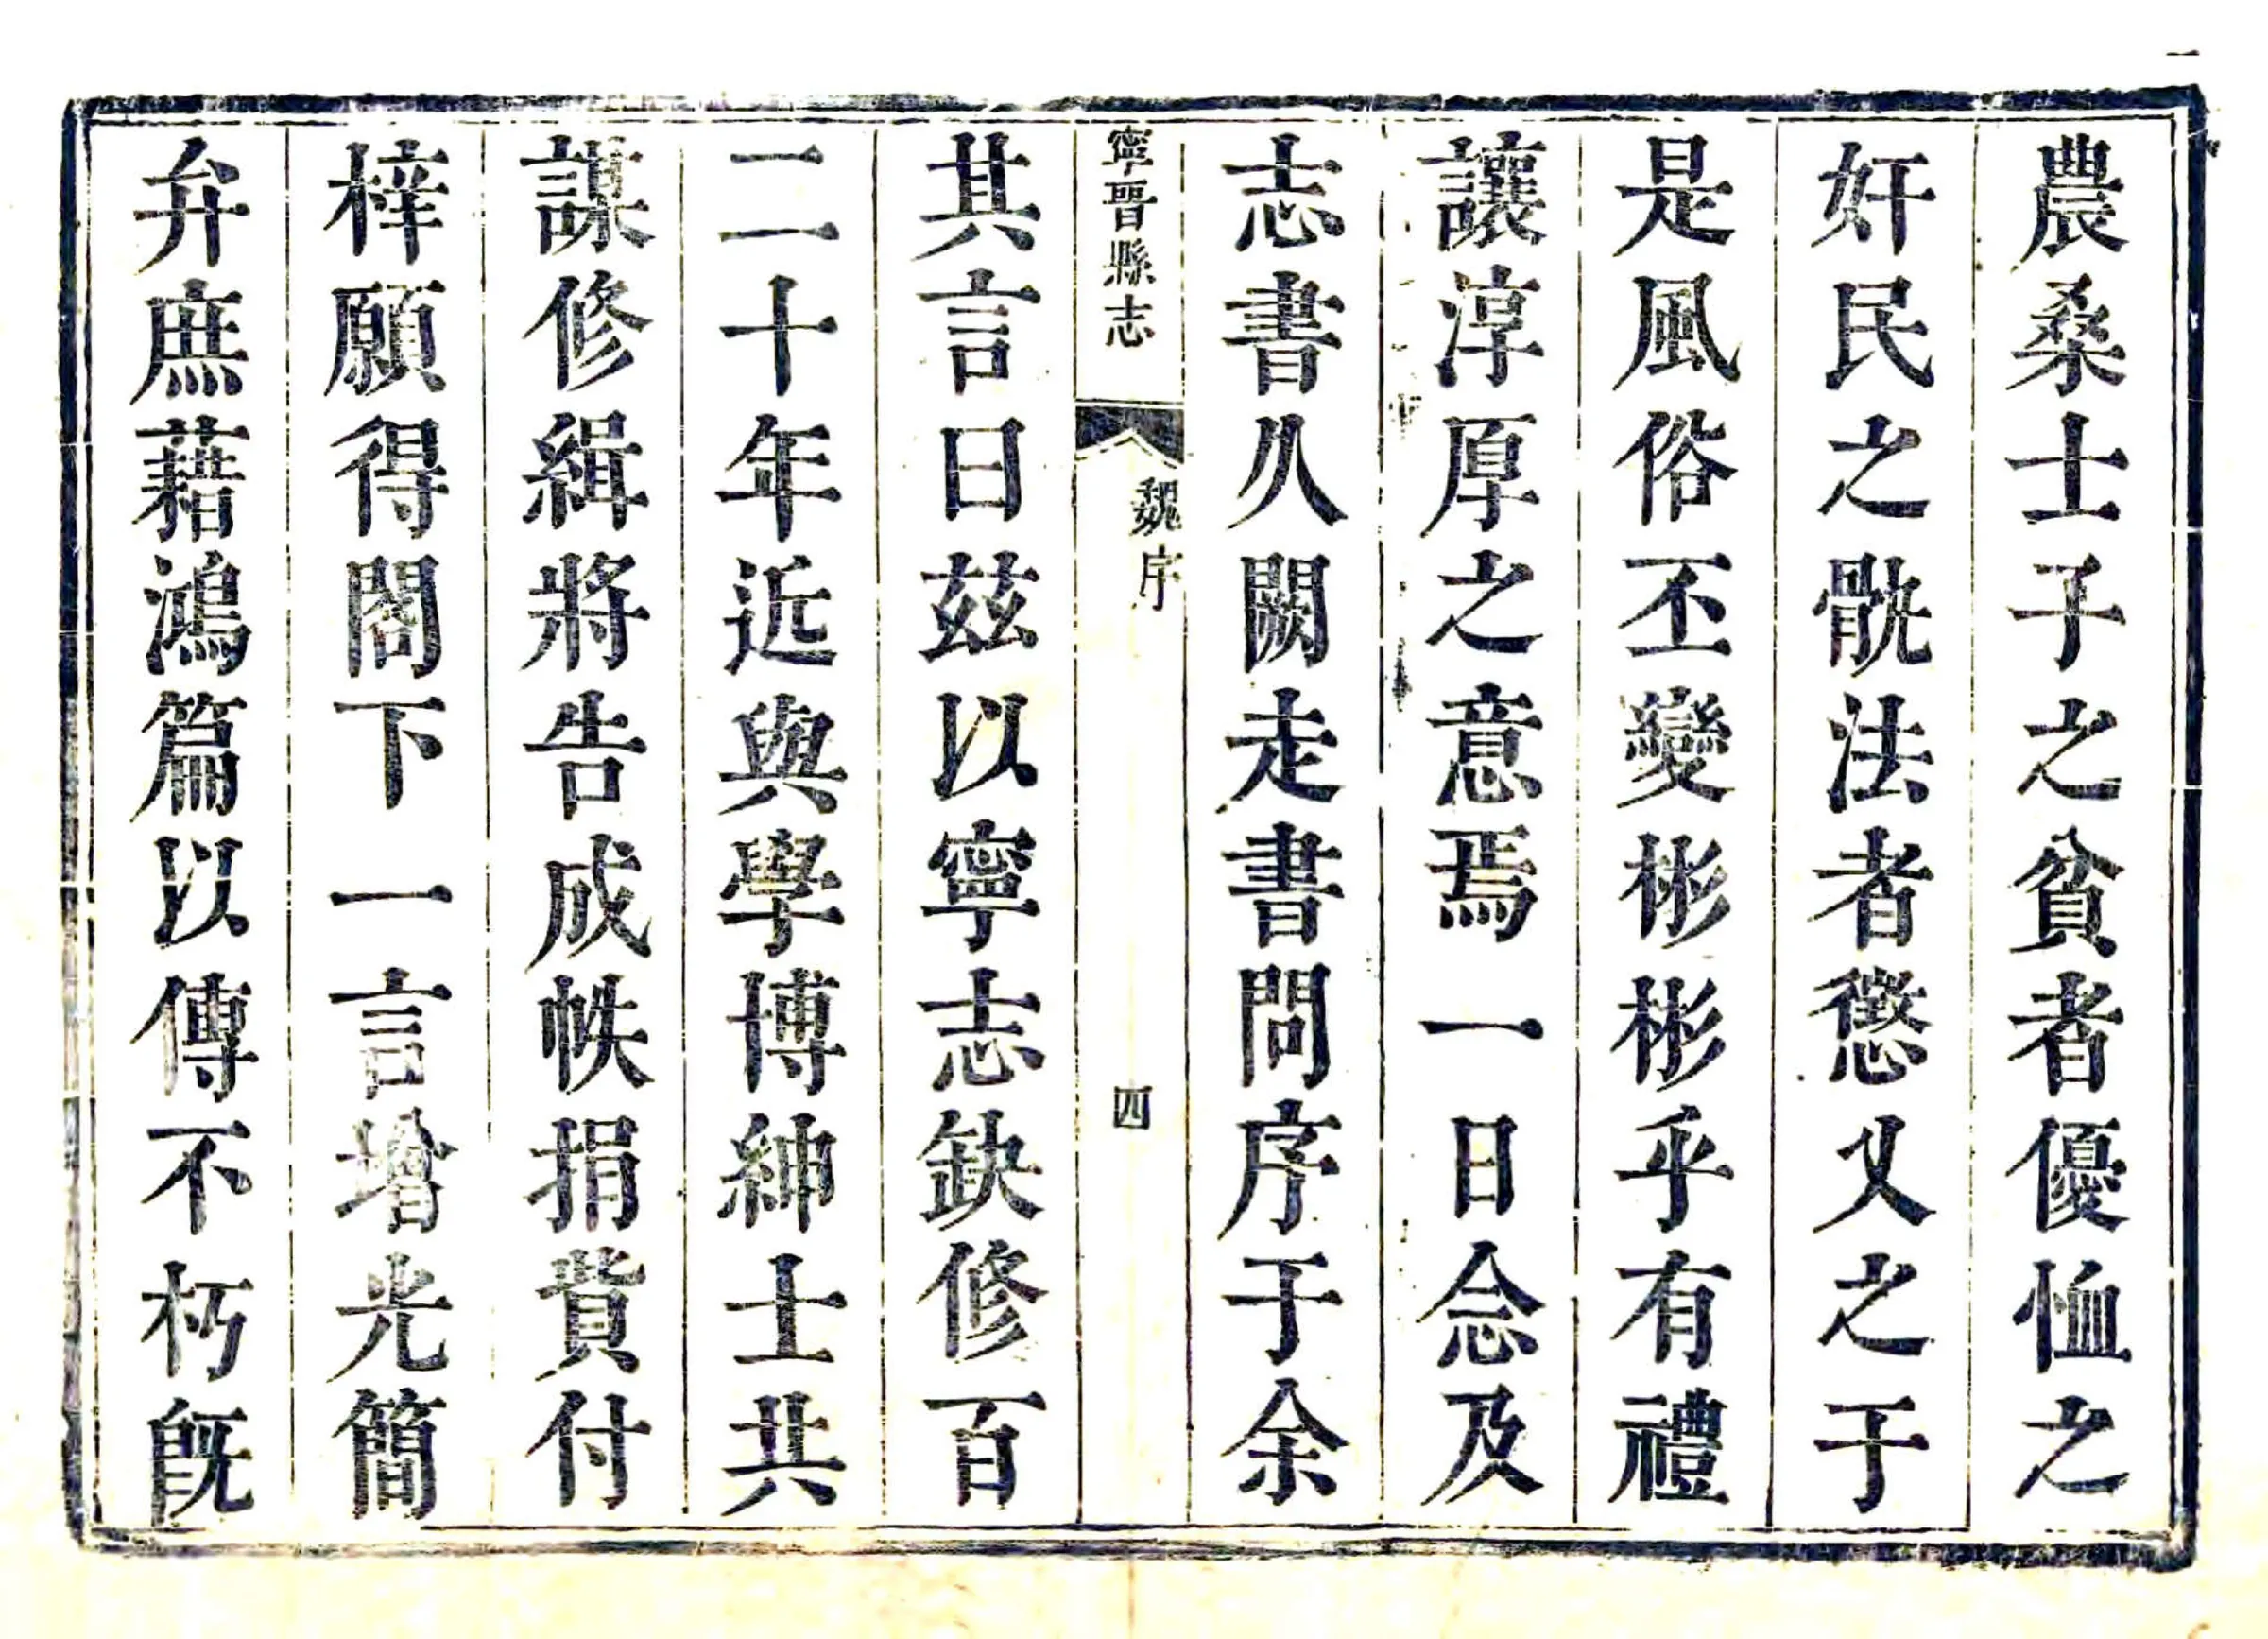 農桑士子之貧者優恤之
奸民之骩法者懲乂之于
是風俗丕變彬彬乎有禮
讓淳厚之意焉一日念及
志書久闕走書問序于余
寧晉縣志 魏序 四
其言曰茲以寧志缺修百
二十年近與學博紳士共
謀修緝將告成帙捐貲付
梓願得閣下一言增光簡
弁庶藉鴻篇以傳不朽既